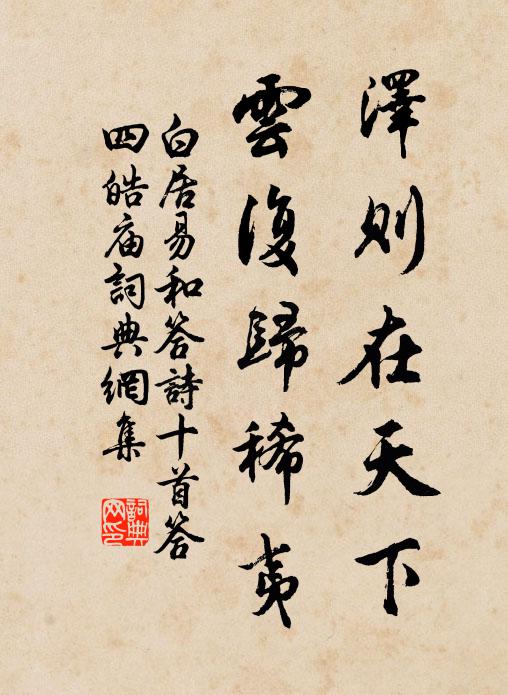 澤則在天下
雲復歸稀夷
白居易和答詩十首答
四皓庙詞典網集
詞典
网印